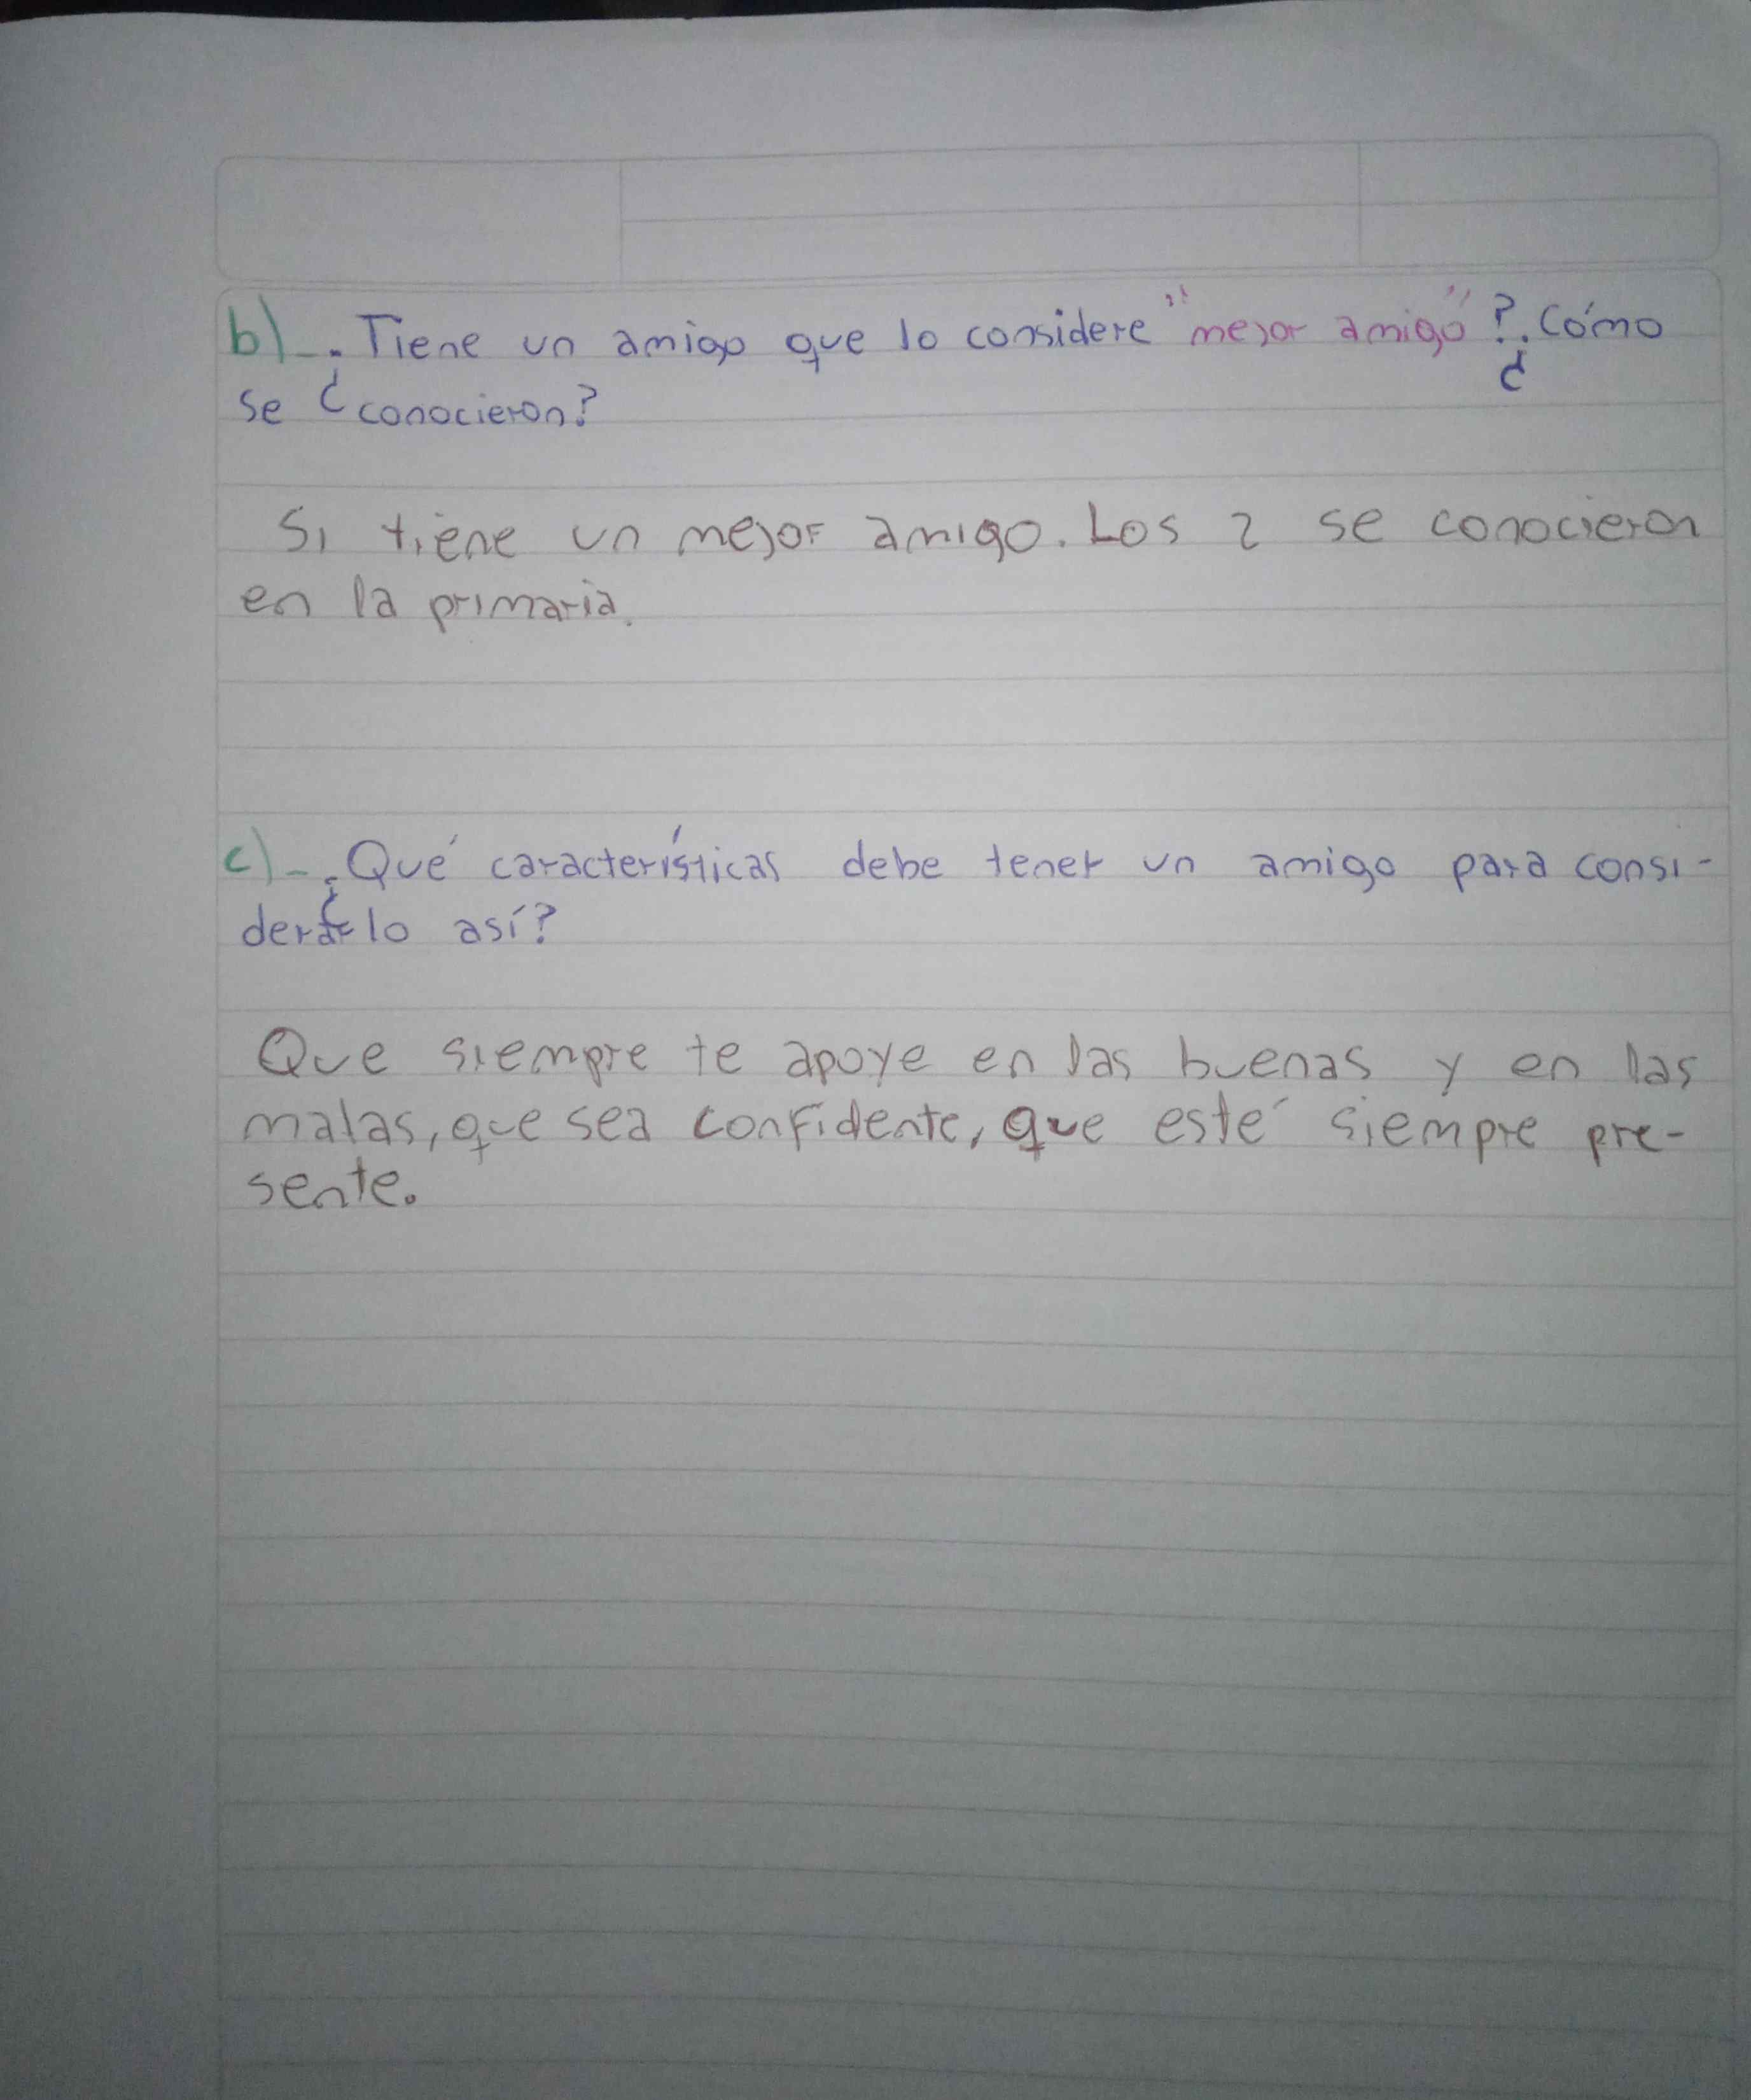 b)-¿Tiene un amigo que lo considere "mejor amigo"?¿Cómo
se conocieron?
Si tiene un mejor amigo. Los 2 se conocieron
en la primaria.
c)-¿Qué características debe tener un amigo para consi-
derarlo así?
Que siempre te apoye en las buenas y en las
malas, que sea confidente, que esté siempre pre-
sente.